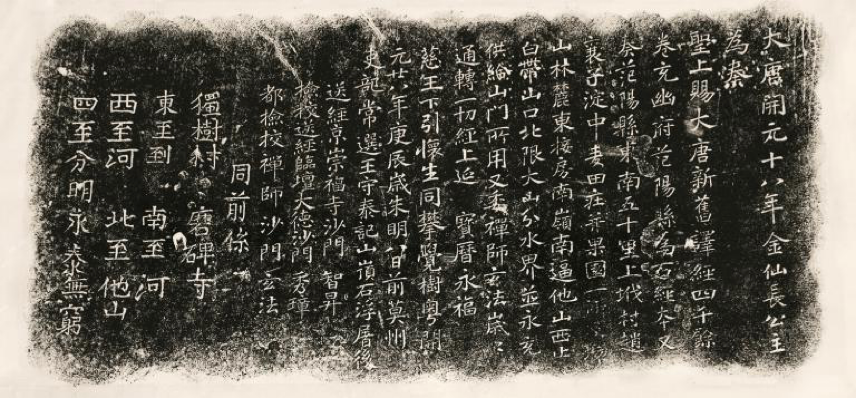 大唐開元十八年金仙長公主
為奏
聖上賜大唐新舊譯經四千餘
卷充幽府范陽縣為石經本又
奏范陽縣東南五十里上垡村趙
襄子淀中麦田庄并果園一所
山林麓東接房南嶺南逼他山西止
白帶山口北限大山分水界並永充
供給山門所用又委禪師玄法歲々
通轉一切經上延 寶曆永福
慈王下引懷生同攀覺樹粤開
元廿八年庚辰歲朱明八日前莫州
吏部常選王守泰記山嶺石浮屠後
送經京崇福寺沙門 智昇
檢校送經臨壇大德沙門 秀璋
都檢校禪師沙門 玄法
同前條
獨樹村 磨碑寺
東至到 南至河
西至河 北至他山
四至分明永泰無窮